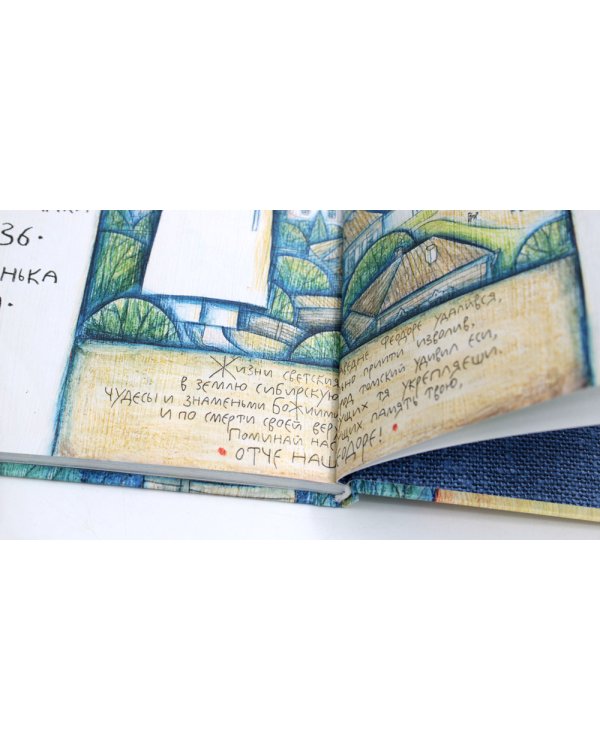 36.
енька
Жизни светския ведне Феодоре удалився,
в землю сибирскую но приити изволив,
чудесы и знаменьми Божиими род томский удивил еси,
и по смерти своей вер ущих тя укрепляеши.
Поминай нас щих память твою,
• отче наш еодоре! •